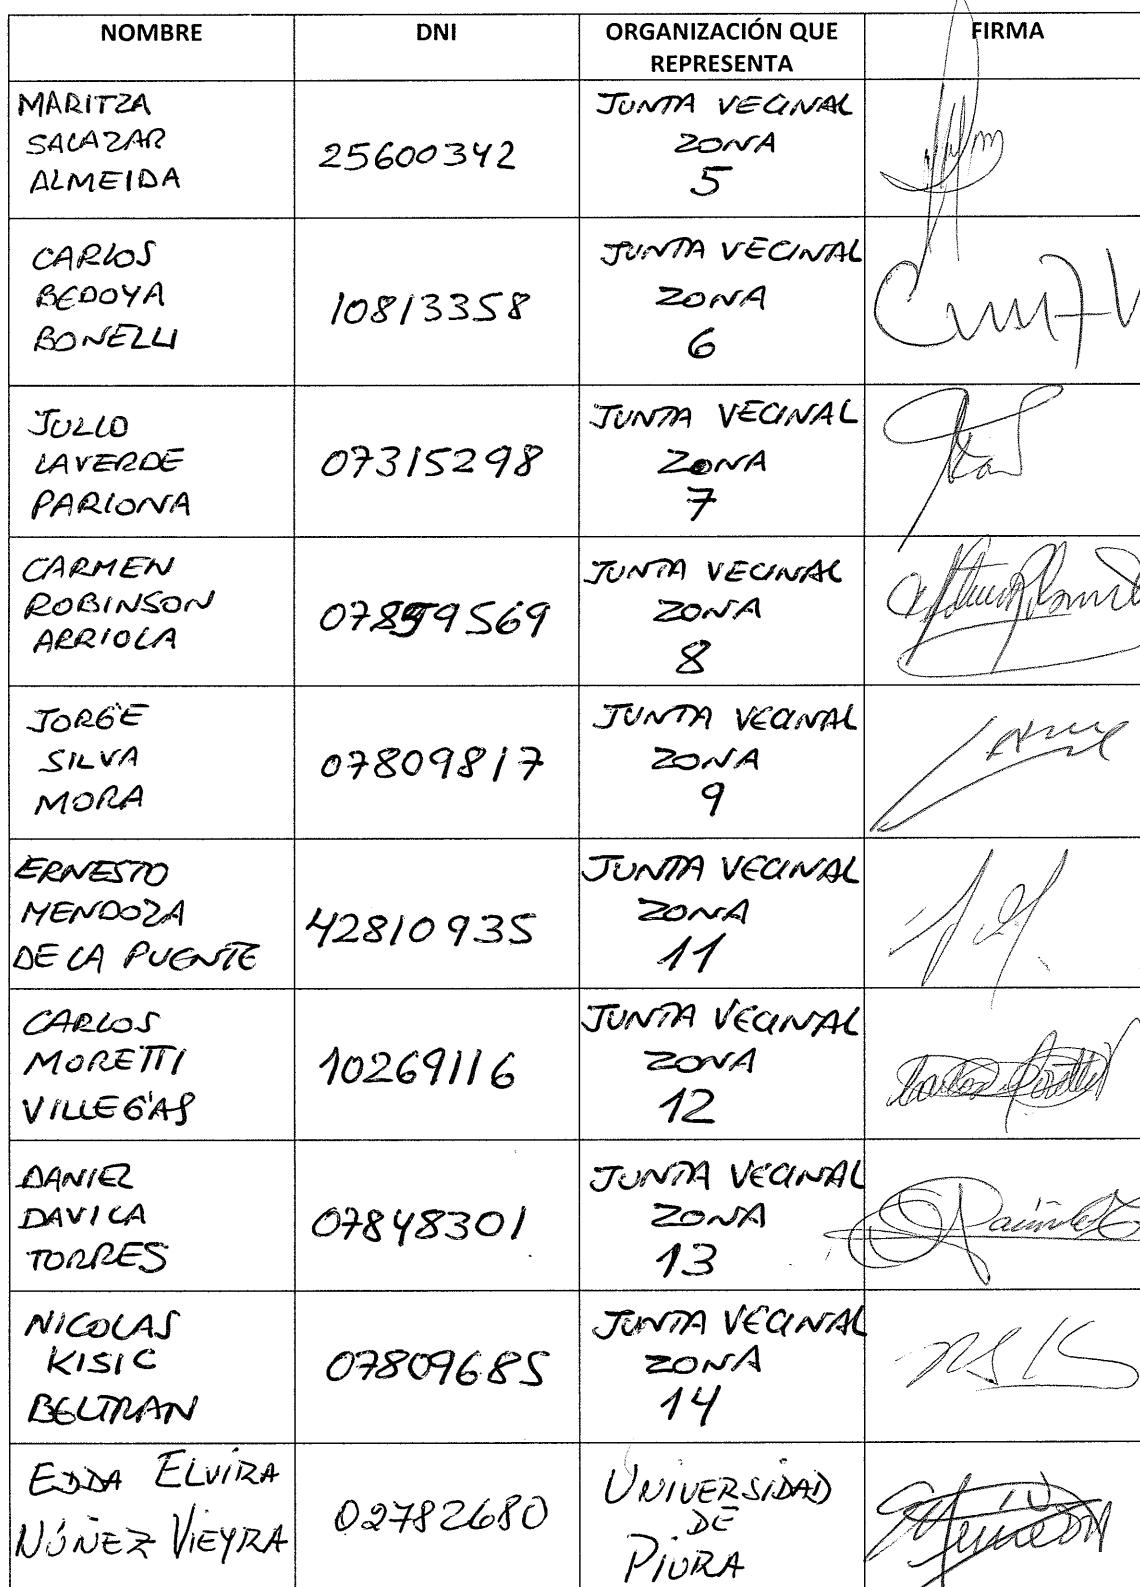 NOMBRE DNI ORGANIZACIÓN QUE REPRESENTA FIRMA
MARITZA
SALAZAR
ALMEIDA
25600342
JUNTA VECINAL
ZONA
5
CARLOS
BEDOYA
BONELLI
10813358
JUNTA VECINAL
ZONA
6
JULIO
LAVERDE
PARIONA
07315298
JUNTA VECINAL
ZONA
7
CARMEN
ROBINSON
ARRIOLA
07859569
JUNTA VECINAL
ZONA
8
JORGE
SILVA
MORA
07809817
JUNTA VECINAL
ZONA
9
ERNESTO
MENDOZA
DE LA PUENTE
42810935
JUNTA VECINAL
ZONA
11
CARLOS
MORETTI
VILLEGAS
10269116
JUNTA VECINAL
ZONA
12
DANIEL
DAVILA
TORRES
07848301
JUNTA VECINAL
ZONA
13
NICOLAS
KISIC
BELTRAN
07809685
JUNTA VECINAL
ZONA
14
EDDA ELVIRA
NÚÑEZ VIEYRA
02782680
UNIVERSIDAD
DE
PIURA